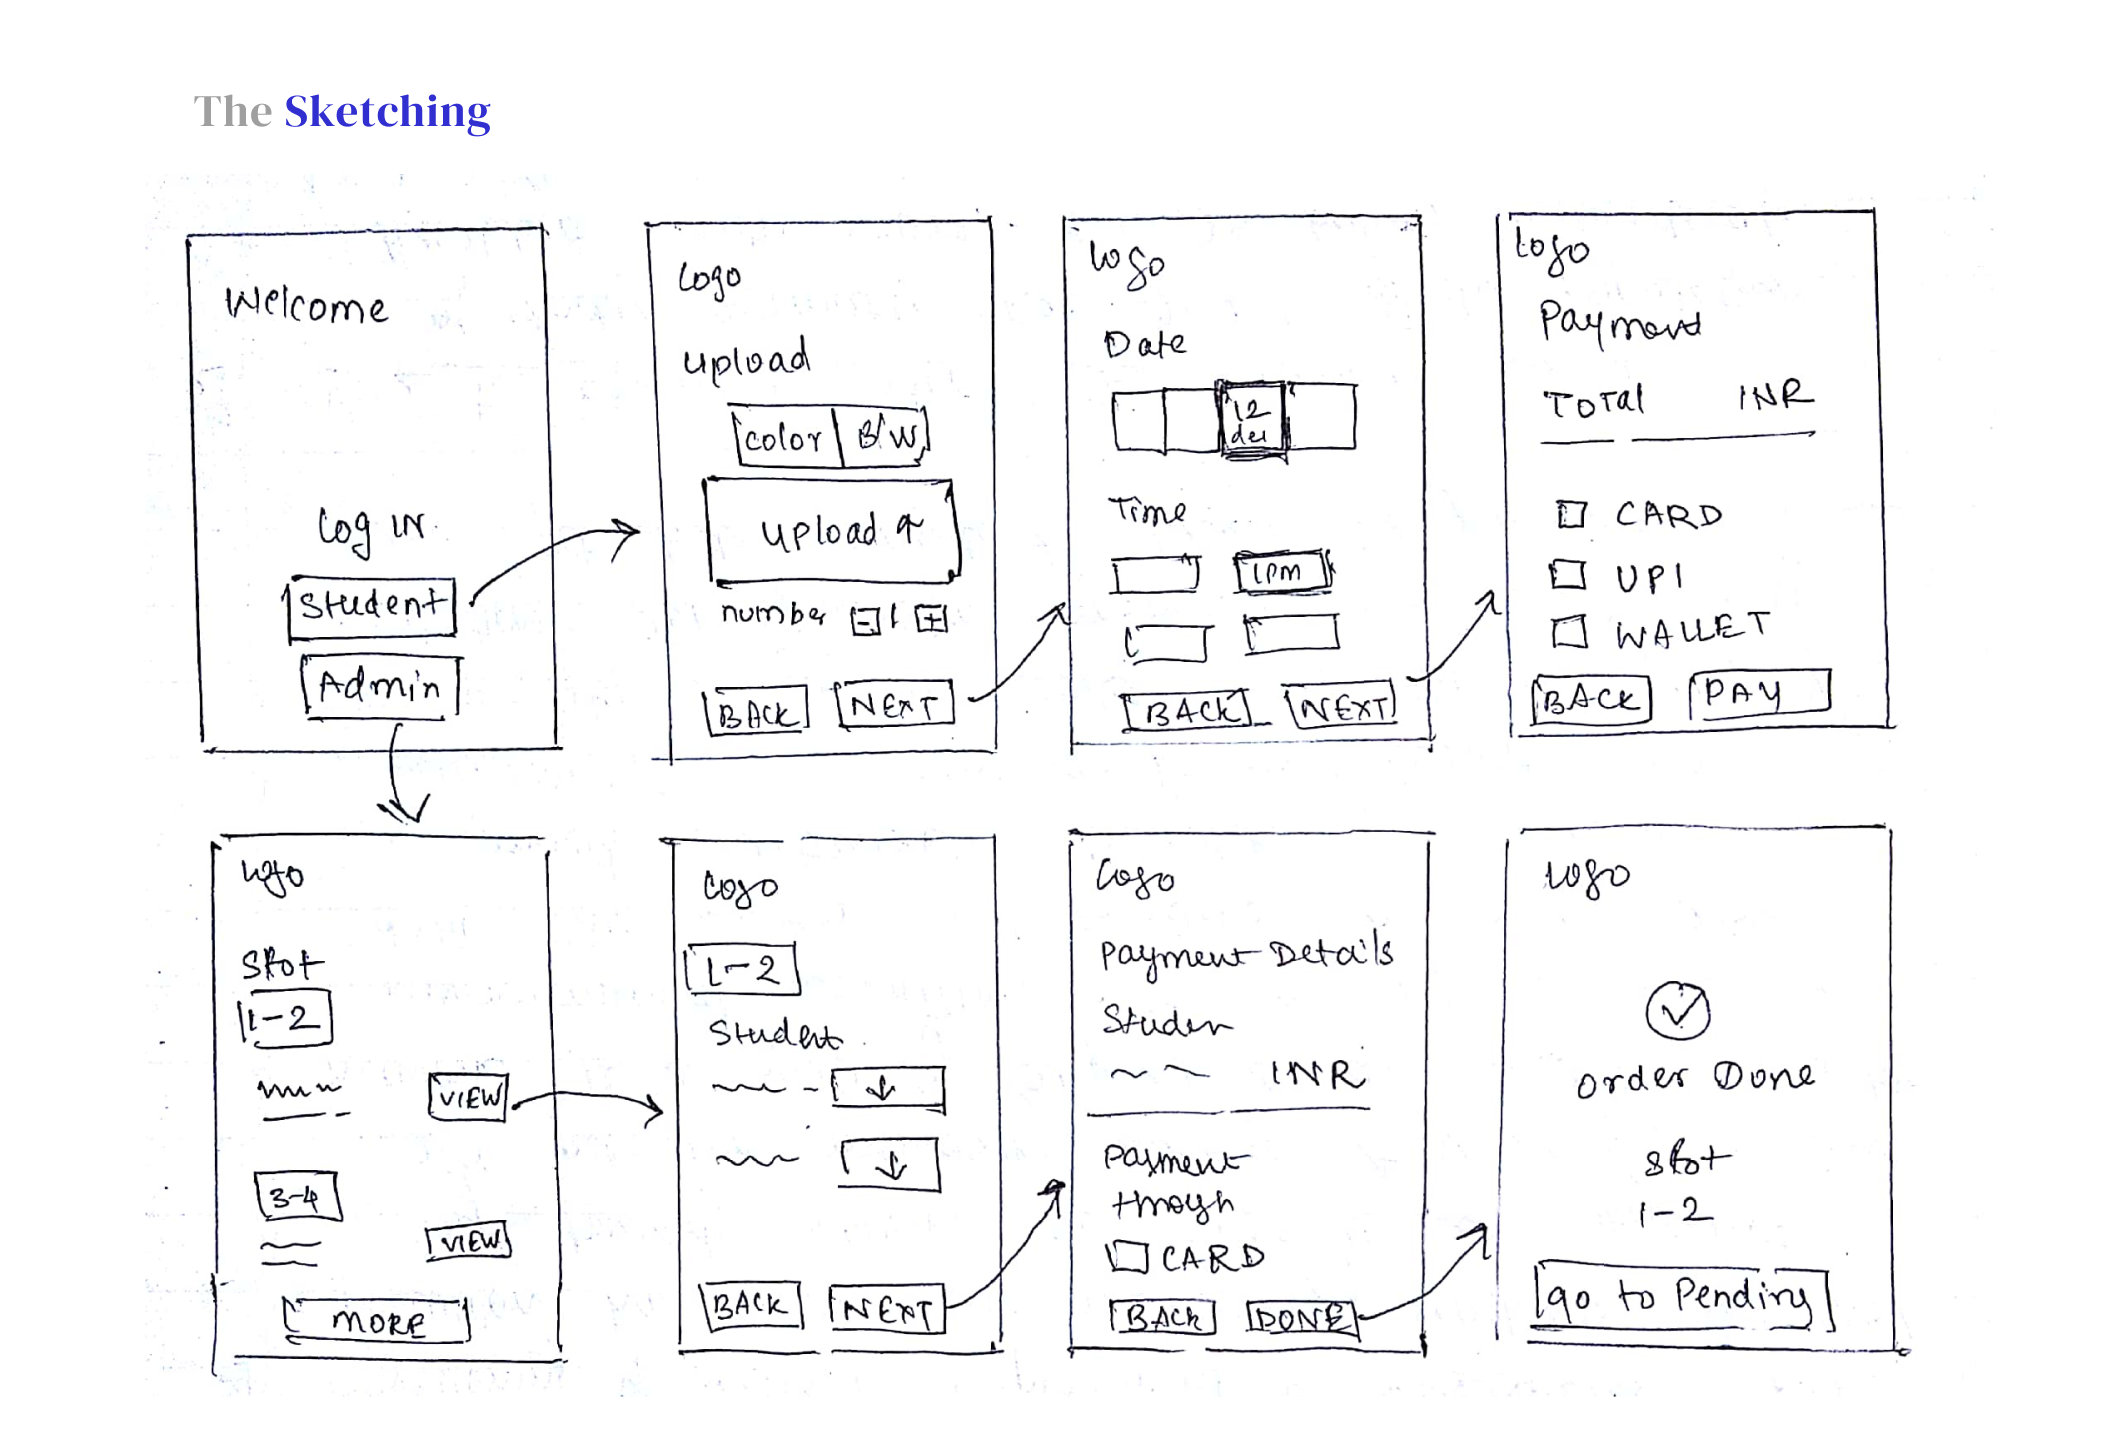 The Sketching
Welcome
Log IN
Student
Admin
Logo
upload
color B/W
upload ↑
number - 1 +
BACK NEXT
Logo
Date
12
dec
Time
1pm
BACK NEXT
Logo
Payment
Total INR
CARD
UPI
WALLET
BACK PAY
Logo
Slot
1-2
VIEW
3-4
VIEW
MORE
Logo
1-2
Student
↓
↓
BACK NEXT
Logo
Payment Details
Studen
INR
Payment
through
CARD
BACK DONE
Logo
Order Done
Slot
1-2
go to Pending